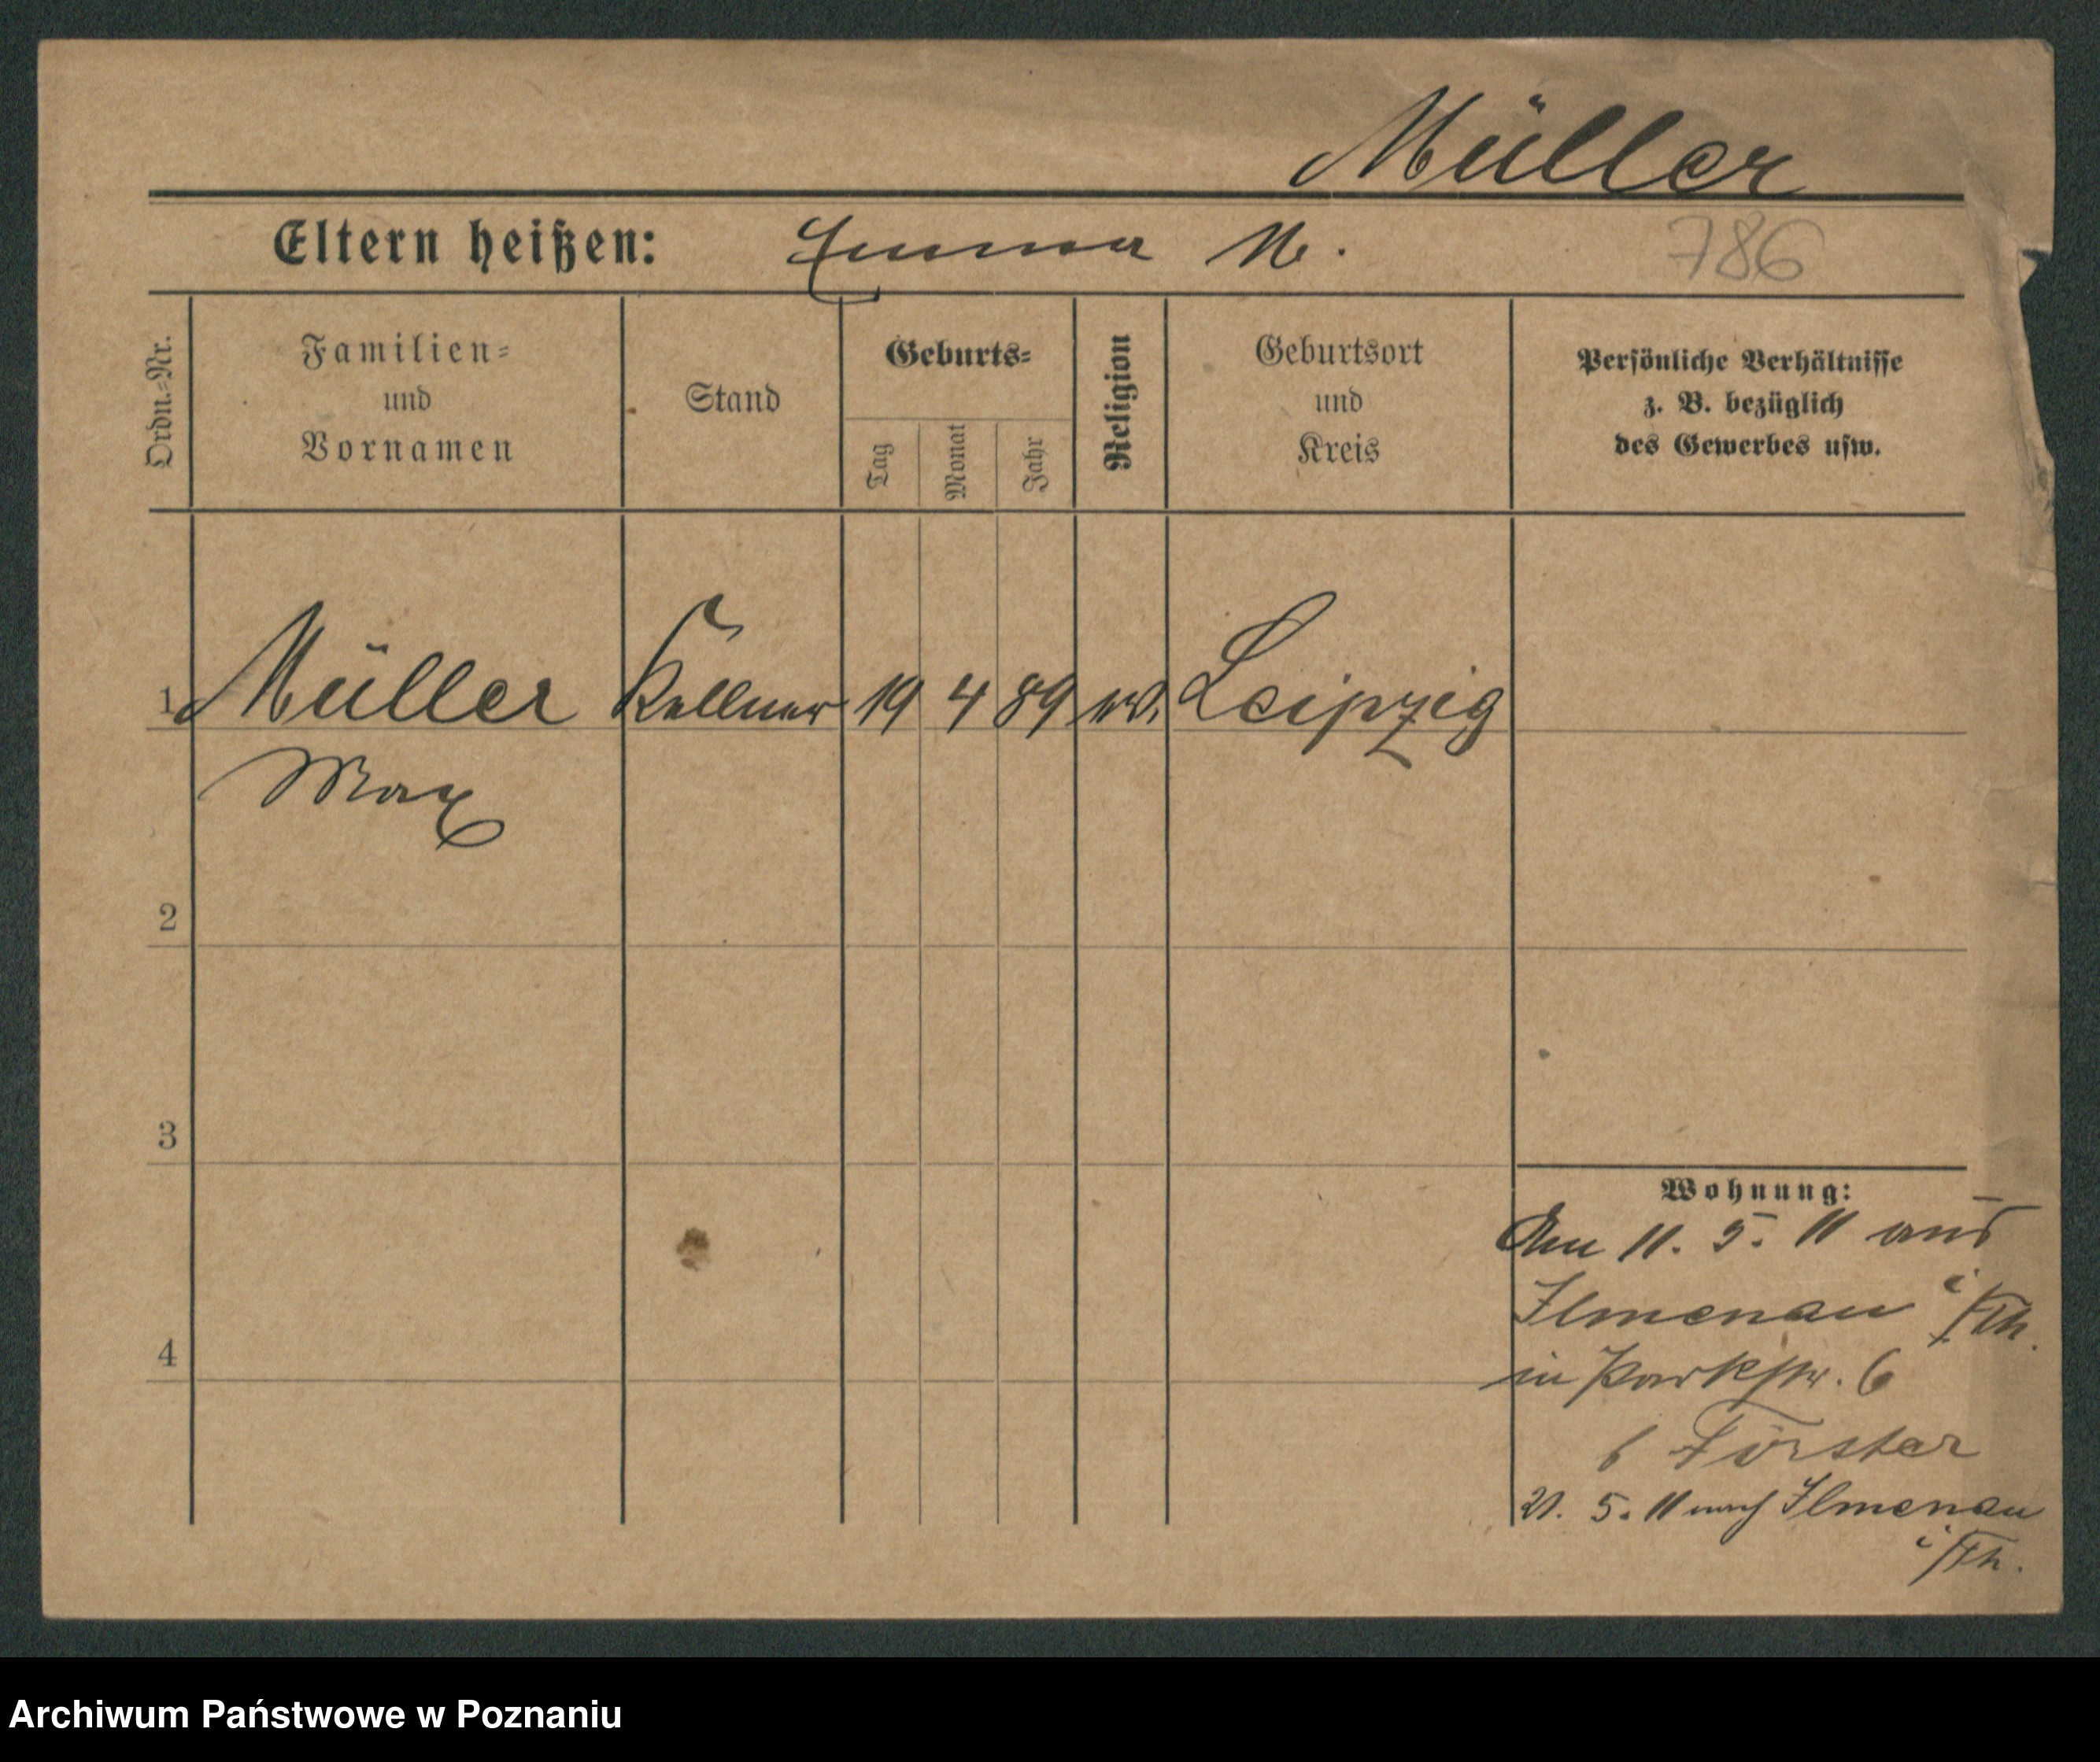 Müller
Eltern heißen: Emma M.
786
Ordn.-Nr.
Familien-
und
Vornamen
Stand
Geburts-
Tag
Monat
Jahr
Religion
Geburtsort
und
Kreis
Persönliche Verhältnisse
z. B. bezüglich
des Gewerbes usw.
1 Müller Kellner 19 4 89 Leipzig
Max
2
3
4
Wohnung:
Am 11. 5. 11 aus
Ilmenau i/Th.
in Parkstr. 6
b Förster
21. 5. 11 nach Ilmenau
i/Th.
Archiwum Państwowe w Poznaniu